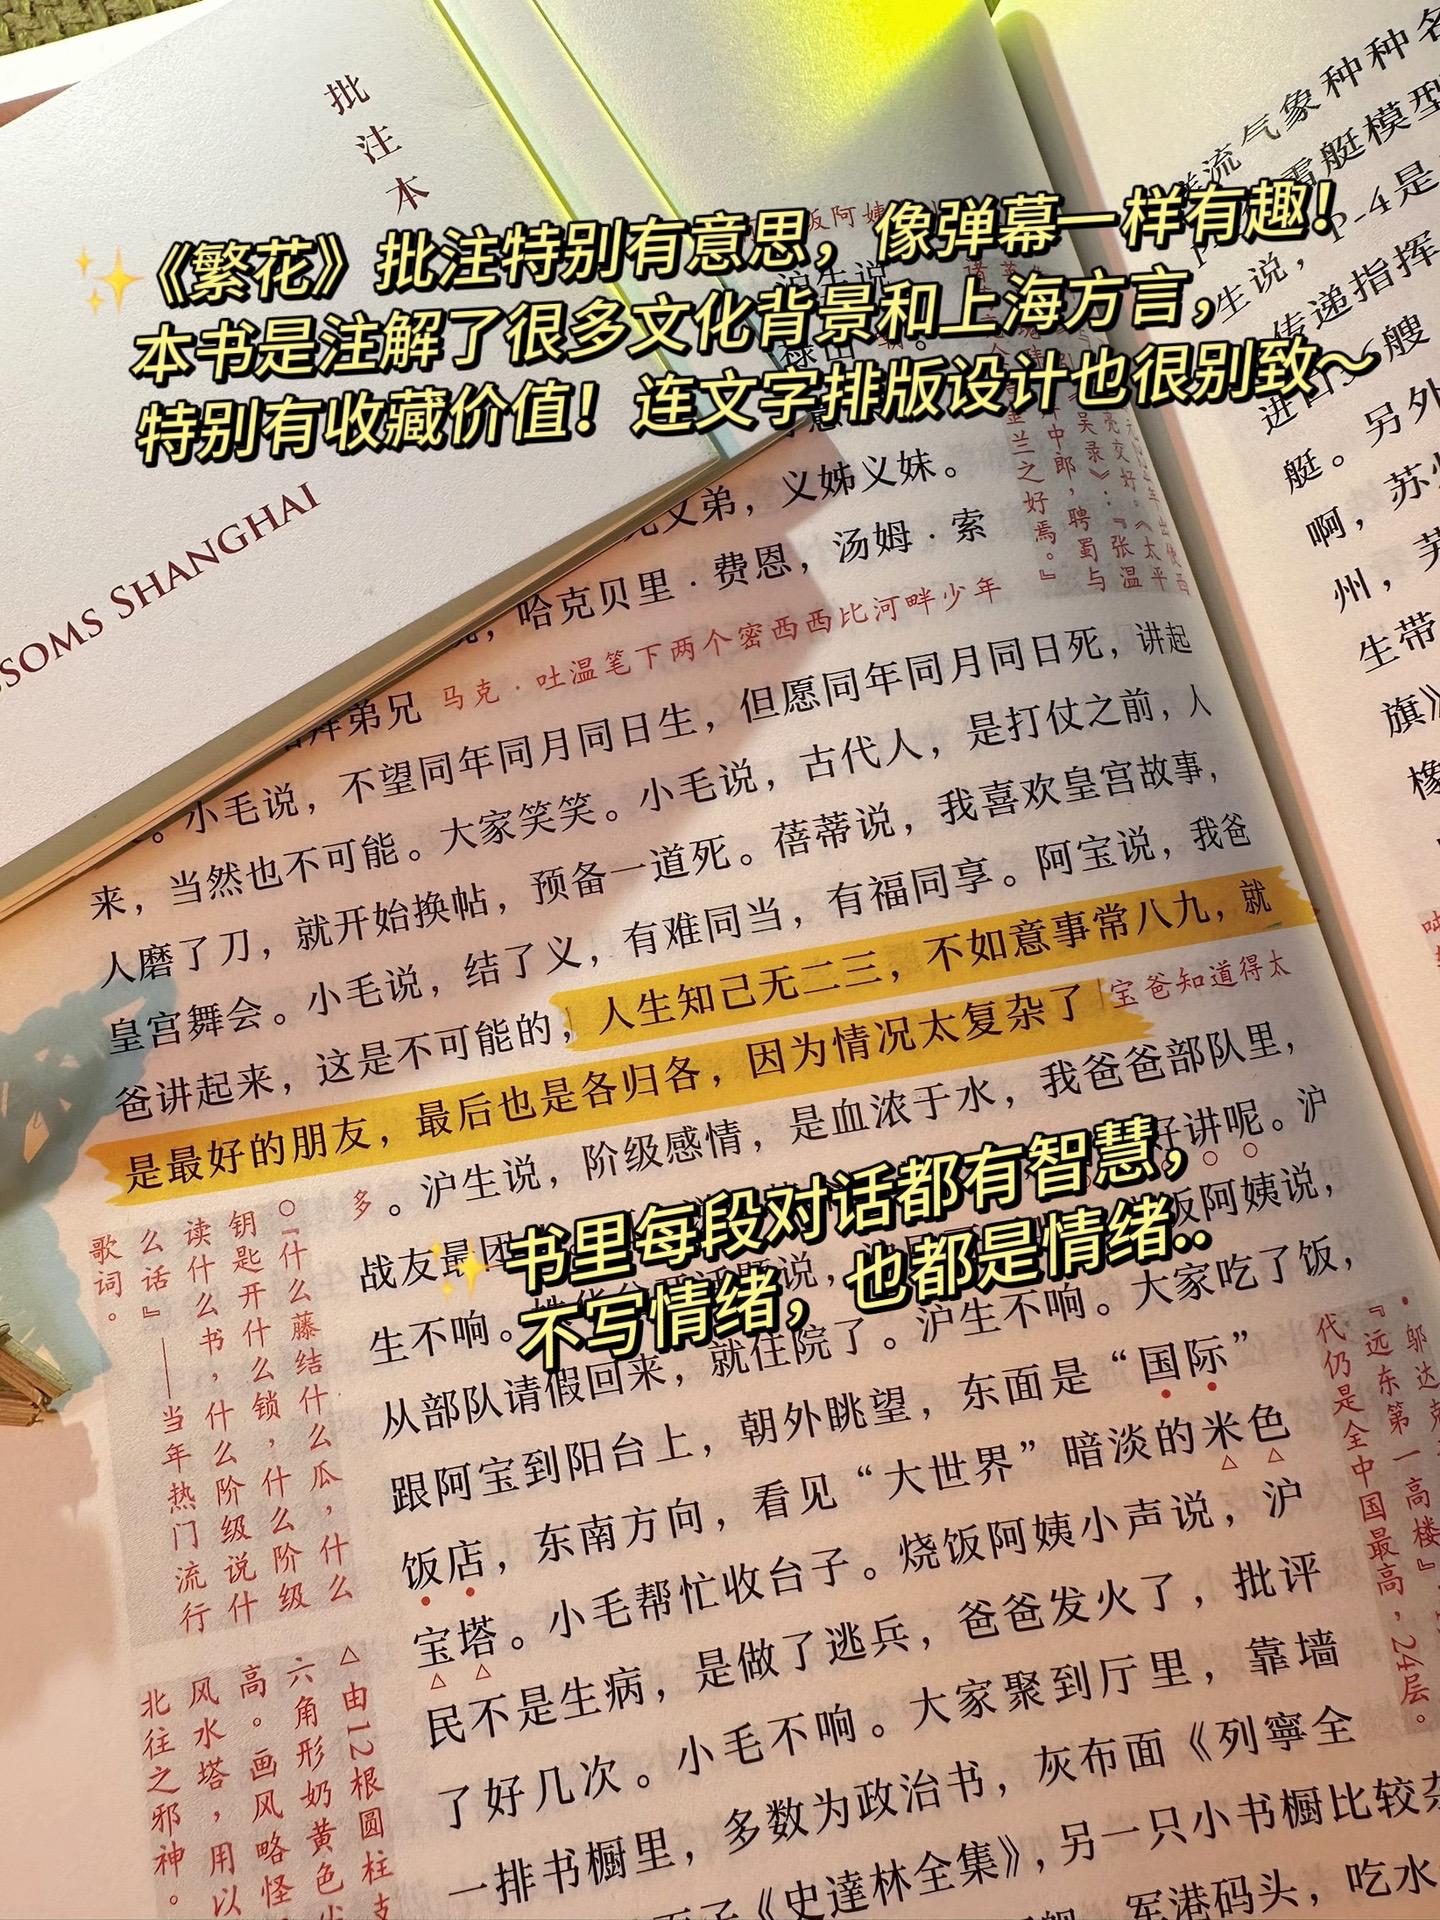 批
注
本
✨《繁花》批注特别有意思，像弹幕一样有趣！
本书是注解了很多文化背景和上海方言，
特别有收藏价值！连文字排版设计也很别致～
SOMS SHANGHAI
弟，义姊义妹。
哈克贝里·费恩，汤姆·索
弟兄 马克·吐温笔下两个密西西比河畔少年
。小毛说，不望同年同月同日生，但愿同年同月同日死，讲起
来，当然也不可能。大家笑笑。小毛说，古代人，是打仗之前，人
人磨了刀，就开始换帖，预备一道死。蓓蒂说，我喜欢皇宫故事，
皇宫舞会。小毛说，结了义，有难同当，有福同享。阿宝说，我爸
爸讲起来，这是不可能的，人生知己无二三，不如意事常八九，就
是最好的朋友，最后也是各归各，因为情况太复杂了 宝爸知道得太
多。沪生说，阶级感情，是血浓于水，我爸爸部队里，
战友最团
好讲呢。沪
✨书里每段对话都有智慧，
不写情绪，也都是情绪..
生不响。
饭阿姨说，
从部队请假回来，就住院了。沪生不响。大家吃了饭，
跟阿宝到阳台上，朝外眺望，东面是“国际”
饭店，东南方向，看见“大世界”暗淡的米色
宝塔。小毛帮忙收台子。烧饭阿姨小声说，沪
民不是生病，是做了逃兵，爸爸发火了，批评
了好几次。小毛不响。大家聚到厅里，靠墙
一排书橱里，多数为政治书，灰布面《列寧全
《史達林全集》，另一只小书橱比较杂
军港码头，吃水
○『什么藤结什么瓜，什么
钥匙开什么锁，什么阶级
读什么书，什么阶级说什
么话』——当年热门流行
歌词。
△由12根圆柱支
六角形奶黄色
高。画风略怪
风水塔，用以
北往之邪神。
『远东第一高楼』
代仍是全中国最高，24层。
《吴录》：『张温
中郎，聘蜀与
金兰之好焉。』
流气象种种各
雷艇模型
P-4是
生说，
传递指挥
艘
艇。另外
啊，苏州
州，芜
生带
旗》
橡